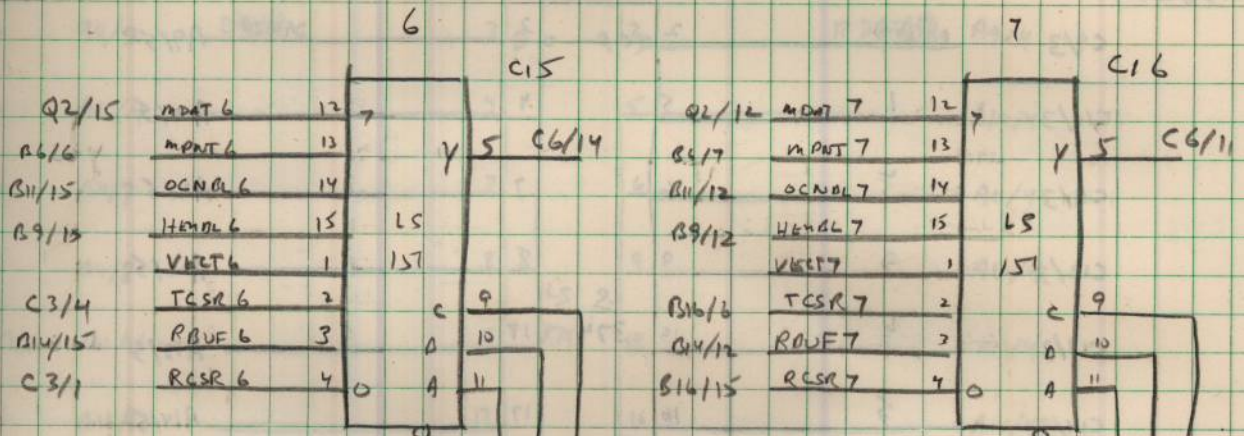 6
C15
Q2/15 MDAT 6 12 7
B6/6 MPNT 6 13 Y 5 C6/14
B11/15 OCNBL 6 14
B9/15 HENBL 6 15 LS
VECT 6 1 151
C3/4 TCSR 6 2 C 9
B14/15 RBUF 6 3 B 10
C3/1 RCSR 6 4 0 A 11
7
C16
Q2/12 MDAT 7 12 7
B6/7 MPNT 7 13 Y 5 C6/11
B11/12 OCNBL 7 14
B9/12 HENBL 7 15 LS
VECT 7 1 151
B16/6 TCSR 7 2 C 9
B14/12 RBUF 7 3 B 10
B16/15 RCSR 7 4 0 A 11